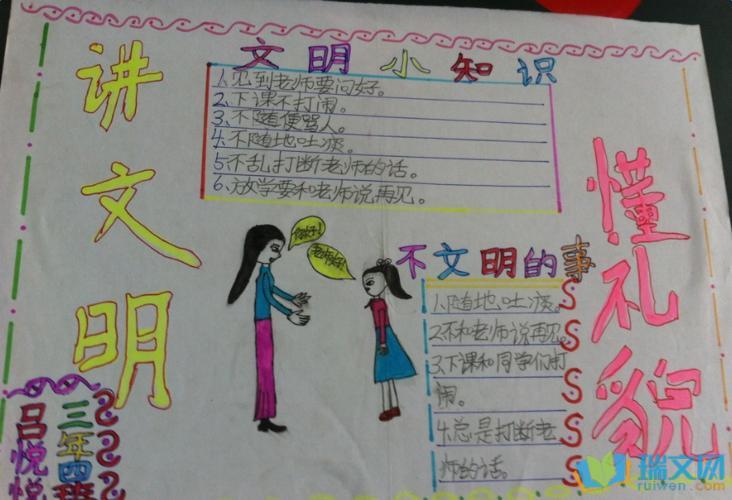 讲文明
文明小知识
1、见到老师要问好。
2、下课不打闹。
3、不随便骂人。
4、不随地吐痰。
5、不乱打断老师的话。
6、放学要和老师说再见。
懂礼貌
你好!
老师好!
不文明的事
1、随地吐痰。
2、不和老师说再见。
3、下课和同学们打
闹。
4、总是打断老
师的话。
三年四班
吕悦悦
瑞文网
ruiwen.com